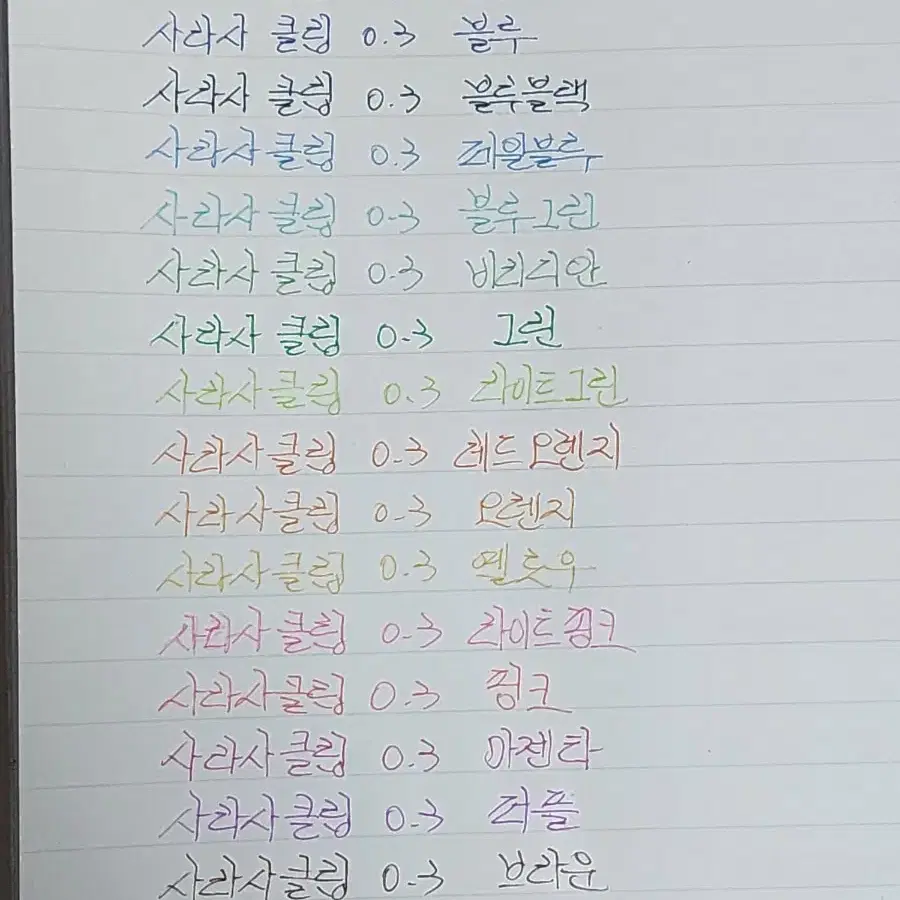 사라사 클립 0.3 블루
사라사 클립 0.3 블루블랙
사라사 클립 0.3 페일블루
사라사 클립 0.3 블루그린
사라사 클립 0.3 비리디안
사라사 클립 0.3 그린
사라사 클립 0.3 라이트그린
사라사 클립 0.3 레드오렌지
사라사 클립 0.3 오렌지
사라사 클립 0.3 옐로우
사라사 클립 0.3 라이트핑크
사라사 클립 0.3 핑크
사라사 클립 0.3 마젠타
사라사 클립 0.3 퍼플
사라사 클립 0.3 브라운